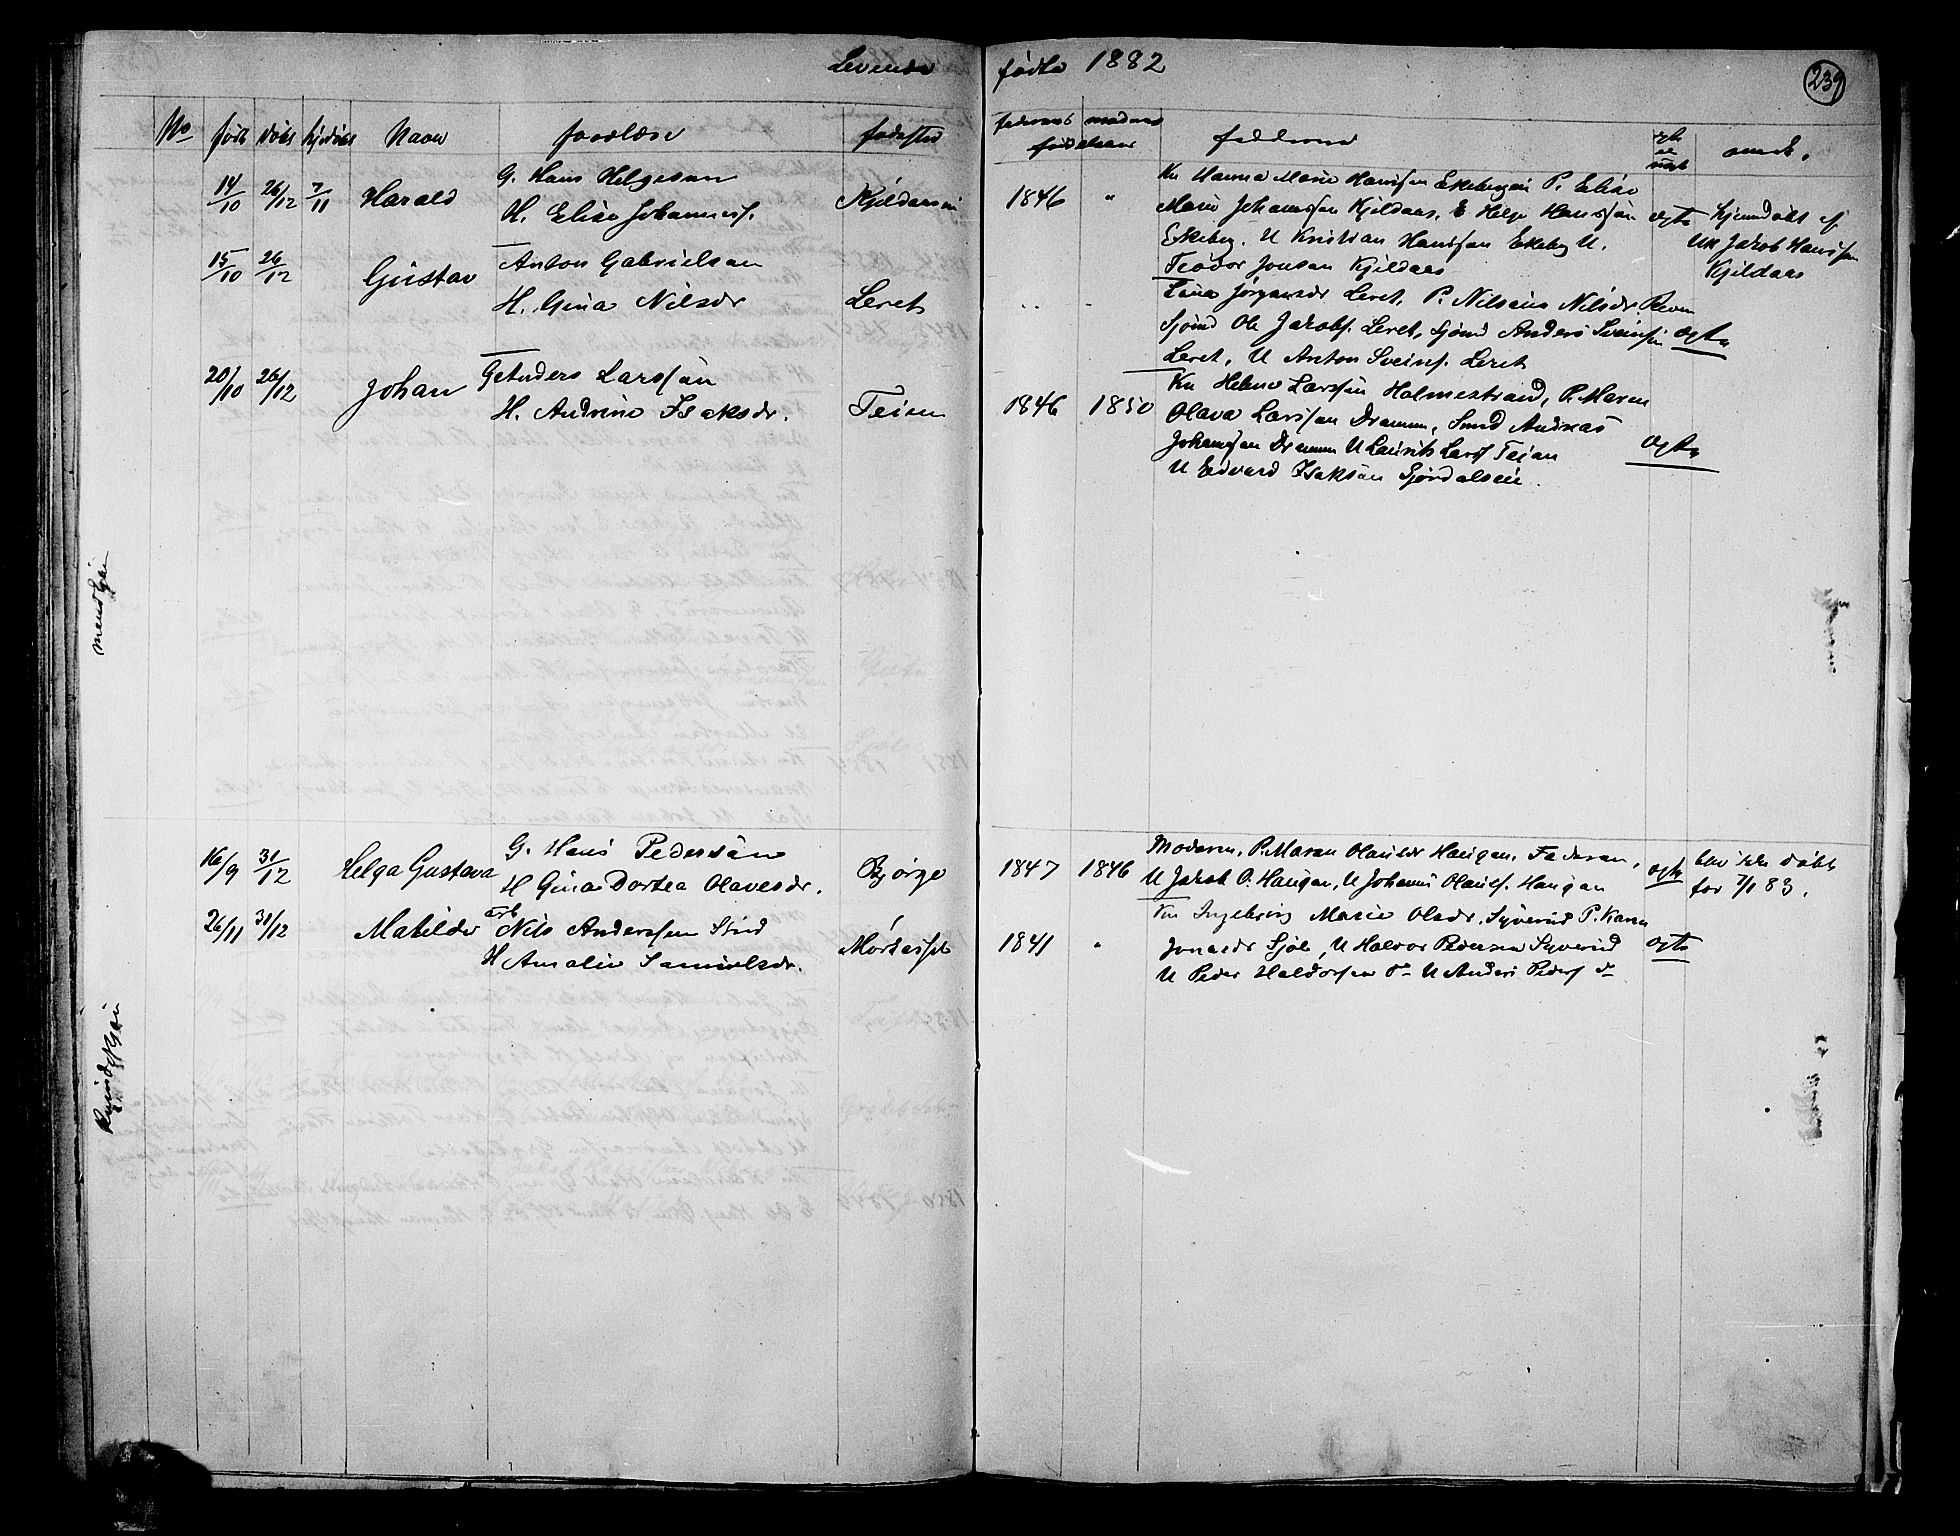 Levende fødte 1882
239
No født døbt hjdøbt Navn foreldre fødested faderens moders fødselsaar fadderne egte el uegte anm.
14/10 26/12 7/11 Harald G. Hans Helgesen
H. Elise Johannesf.
1846 "
Kn Hanna Marie Hanssen Ekebergeie P. Elise
Marie Johannssen Kjeldaas, E Helge Hanssen
Ekeberg. U Kristian Hanssen Ekeberg U.
Teodor Jonsen Kjeldaas
egte
hjemdøbt af
UK Jakob Hanssen
Kjeldaas
15/10 26/12 Gustav Anton Gabrielsen
H. Gina Nilsdr Leret
" "
Lina Jørgensdr Leret, P. Nilsine Nilsdr Revem
Gjømd Ole Jakobs. Leret, Gjømd Anders Sveinsen
Leret, U Anton Sveins. Leret
egte
20/10 26/12 Johan G Anders Larssen
H. Andrine Isaksdr. Teien
1846 1850
Kn Helene Larssen Holmestrand, P. Maren
Olava Larssen Dramm, Smed Andreas
Johanssen Dramm U Laurits Larss Teien
U Edvard Isaksen Gjørdalseie.
egte
16/9 31/12 Helga Gustava G. Hans Pedersen
H Gina Dortea Olavesdr. Bjørge
1847 1846
Moderen, P. Maren Olausdr Haugan, Faderen,
U Jakob O. Haugan, U Johannes Olausf. Haugan
egte
blev ikke døbt
før 7/1 83.
26/11 31/12 Matilde arb Nils Anderssen Stud
H Amalie Samuelsdr.
1841 "
Kn Ingeborg Marie Olsdr. Syverud P. Karen
Jonasdr Sjøl, U Halvor Pedersen Syverud
U Peder Haldorsen do U Anders Peders do
egte
Mandkjøn
Kvindekjøn